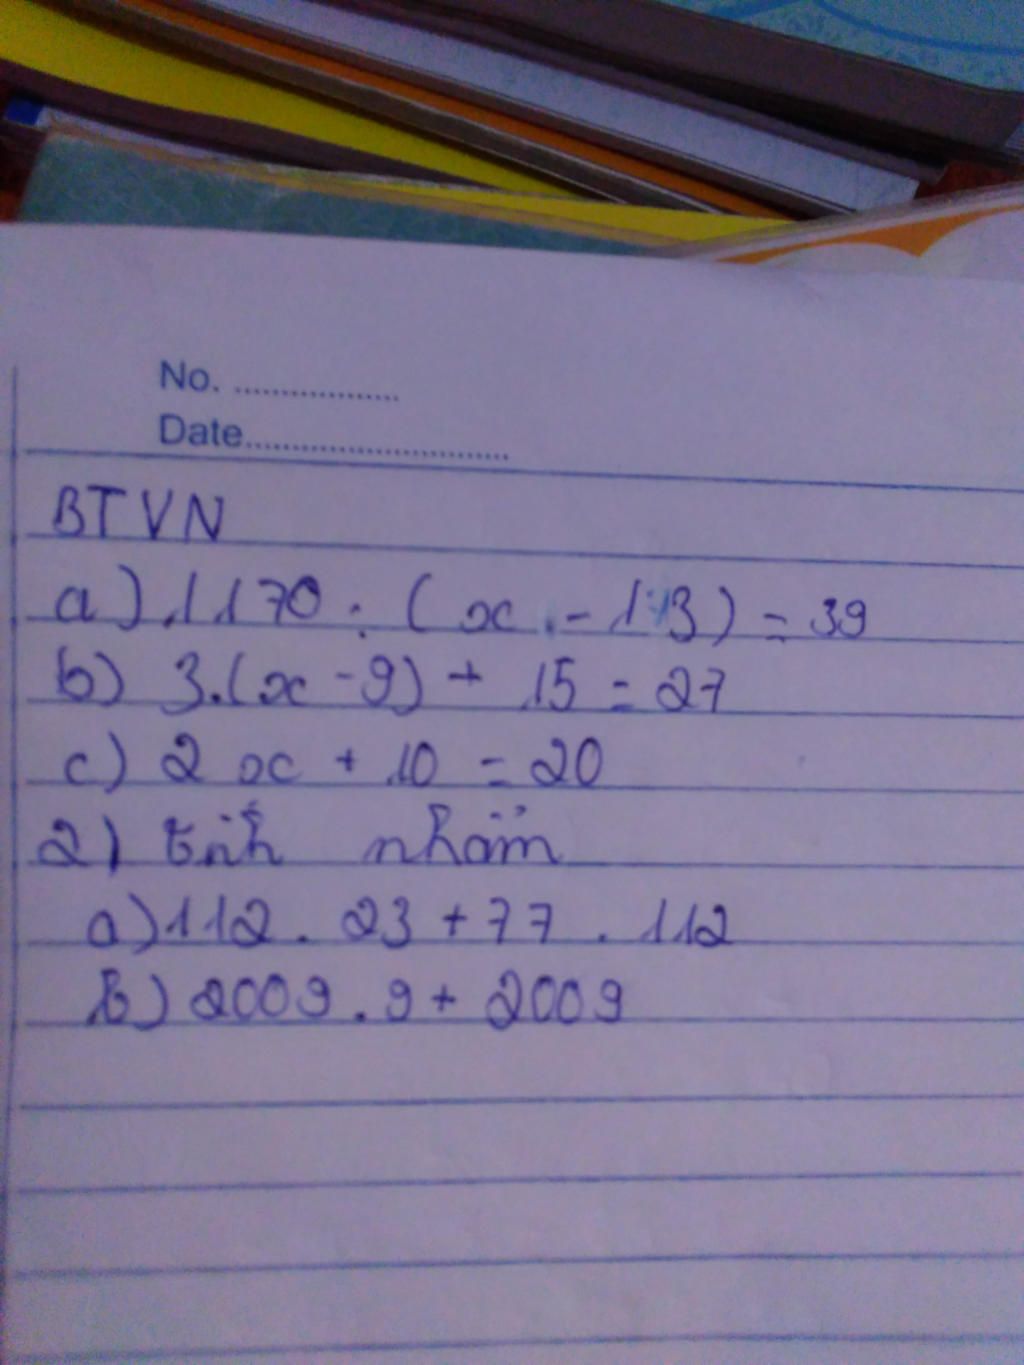 No. ..................
Date.............................
BTVN
a) 1170 : (x - 13) = 39
b) 3.(x - 9) + 15 = 27
c) 2x + 10 = 20
2) tính nhẩm
a) 112 . 23 + 77 . 112
b) 2009 . 9 + 2009